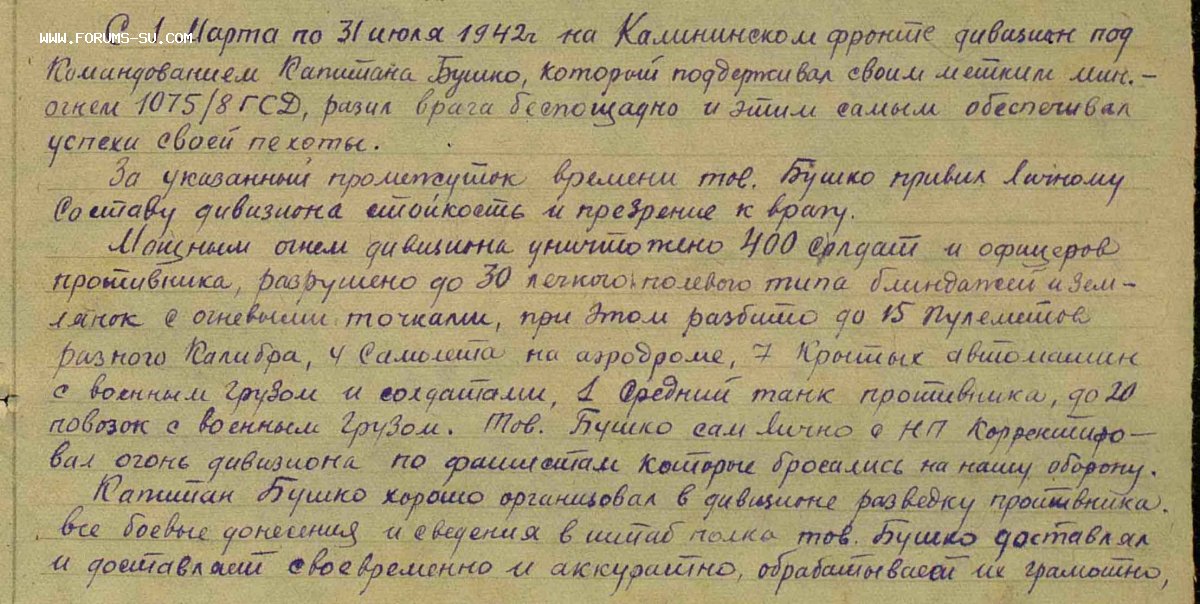 WWW.FORUMS-SU.COM
С 1 Марта по 31 июля 1942г на Калининском фронте дивизион под
Командованием Капитана Бушко, который поддерживал своим метким мин.-
огнем 1075/8 ГСД, разил врага беспощадно и этим самым обеспечивал
успехи своей пехоты.
За указанный промежуток времени тов. Бушко привил личному
Составу дивизиона стойкость и презрение к врагу.
Мощным огнем дивизиона уничтожено 400 солдат и офицеров
противника, разрушено до 30 легкого полевого типа блиндажей и зем-
лянок с огневыми точками, при этом разбито до 15 Пулеметов
разного Калибра, 4 Самолета на аэродроме, 7 Крытых автомашин
с военным грузом и солдатами, 1 Средний танк противника, до 20
повозок с военным грузом. Тов. Бушко сам лично с НП Корректиро-
вал огонь дивизиона по фашистам которые бросались на нашу оборону.
Капитан Бушко хорошо организовал в дивизионе разведку противника.
все боевые донесения и сведения в штаб полка тов. Бушко доставлял
и доставляет своевременно и аккуратно, обрабатывает их грамотно,